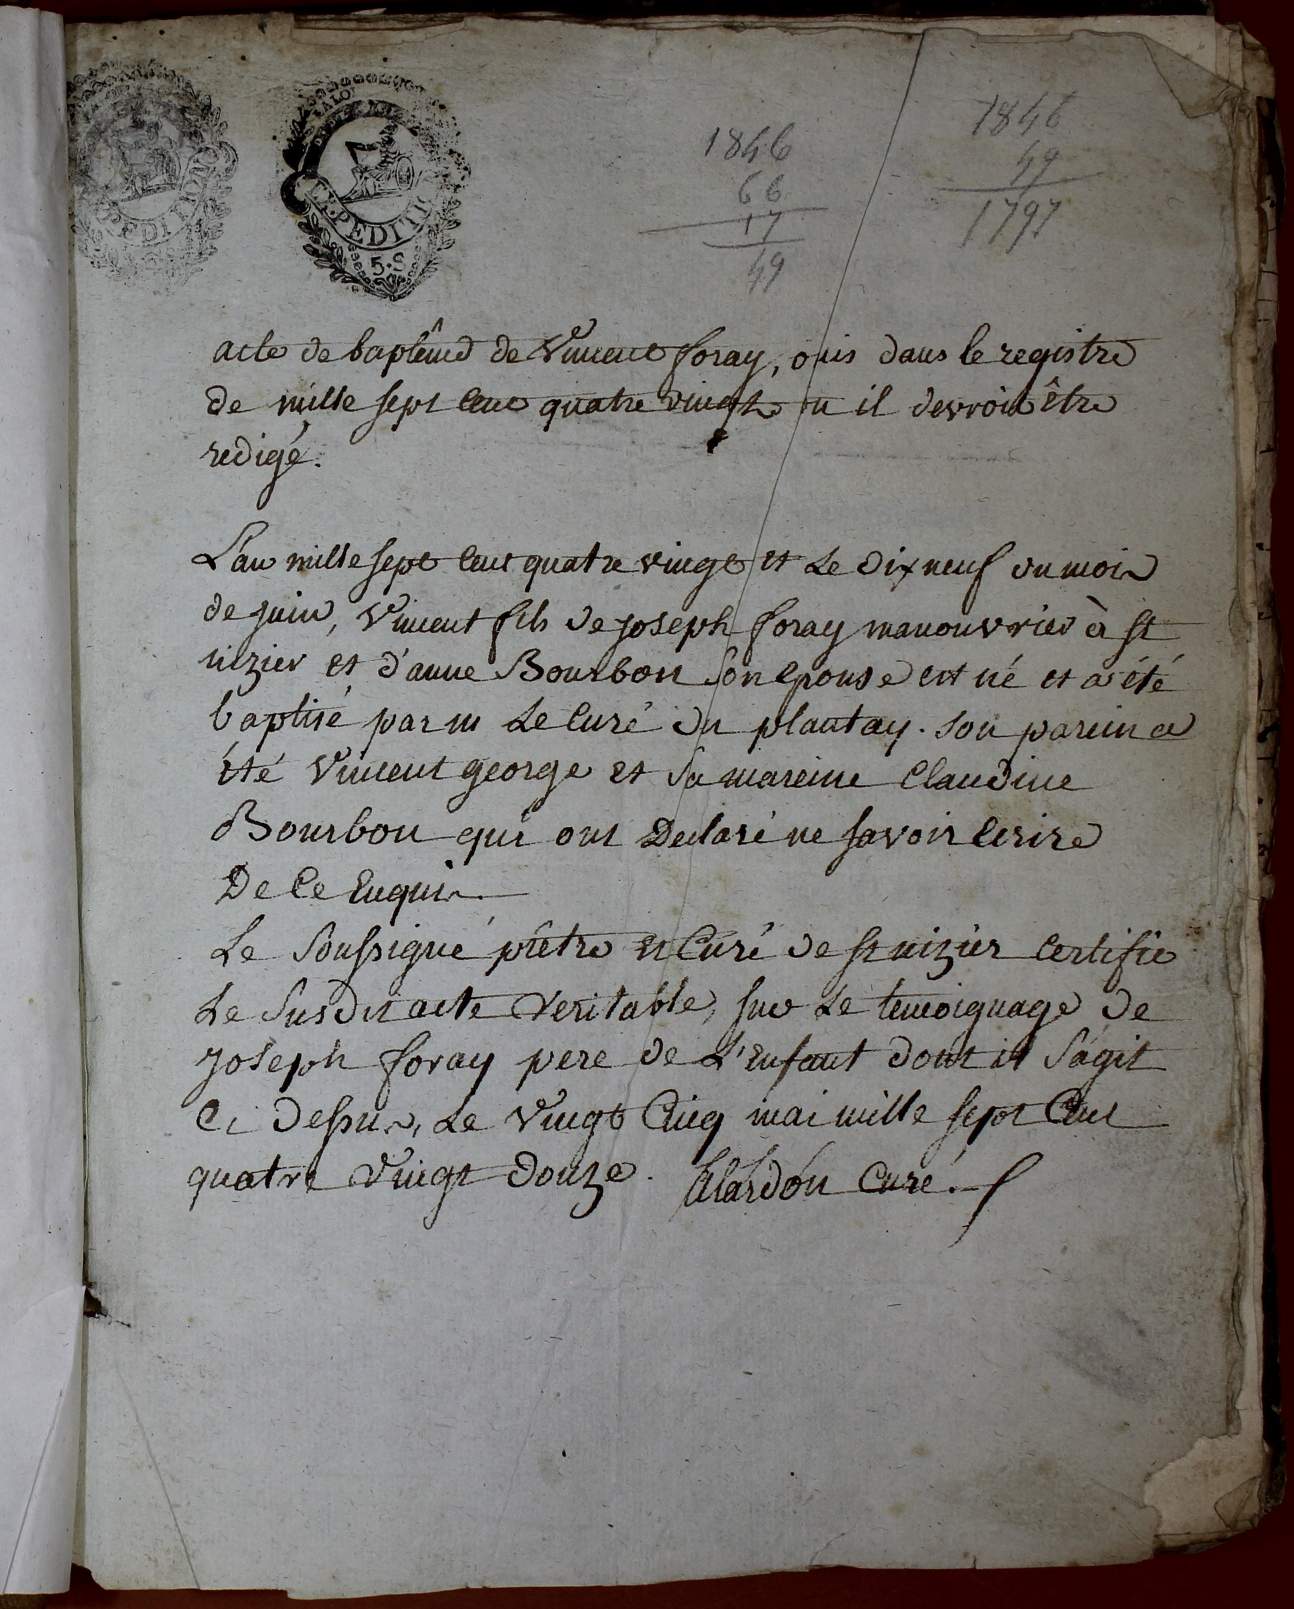 EXPEDITION
5.S
1846
66
17
49
1846
49
1797
acte de baptême de Vincent foray, omis dans le registre
de mille sept cent quatre vingt ou il devroit être
redigé.
L'an mille sept cent quatre vingt et Le dix neuf du mois
de juin, Vincent fils de joseph foray manouvrier à st
nizier et d'anne Bourbon son epouse est né et a été
baptisé par m Le curé du plantay. son parein a
été Vincent george et sa mareine Claudine
Bourbon qui ont Declaré ne savoir ecrire
De Ce Enquis.
Le Soussigné prêtre et Curé de st nizier Certifie
Le Susdit acte veritable, sur Le temoignage de
joseph foray pere de L'enfant dont il s'agit
Ci Dessus, Le Vingt Cinq mai mille sept Cent
quatre Vingt Douze. Alardon Curé.